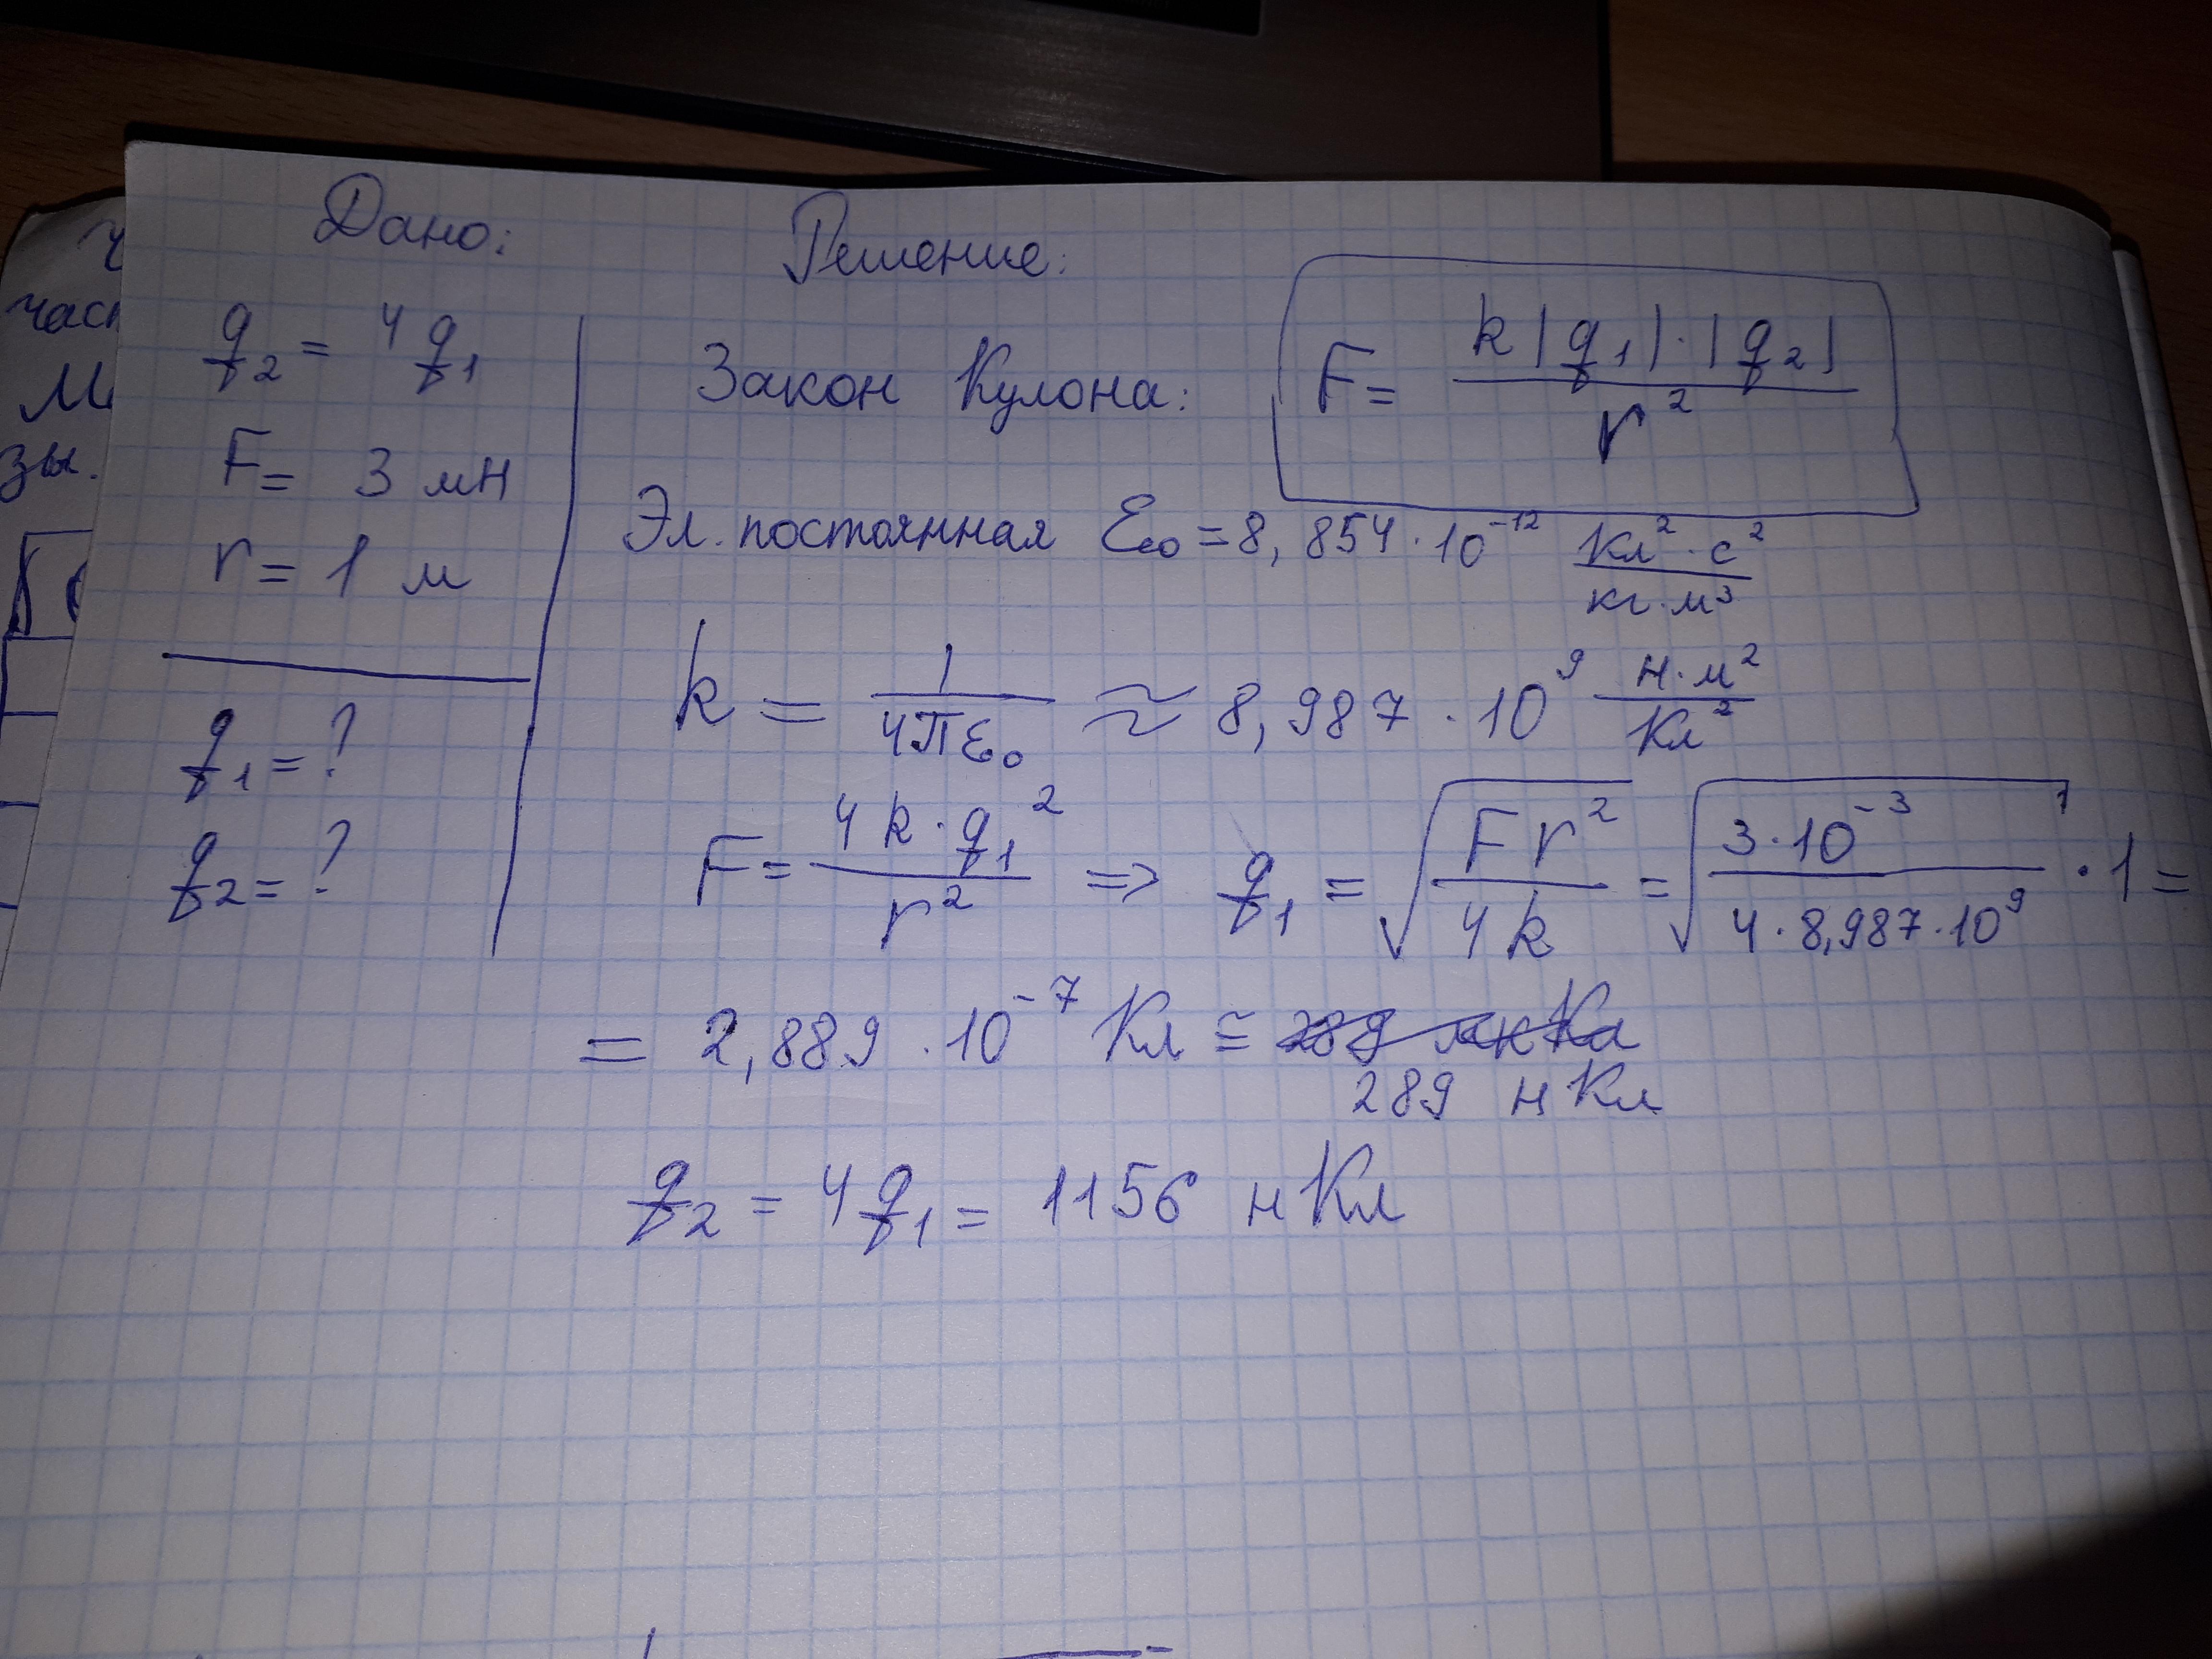 Дано:
q₂ = 4q₁
F = 3 мН
r = 1 м
q₁ = ?
q₂ = ?
Решение:
Закон Кулона: F = k|q₁|·|q₂| / r²
Эл. постоянная ε₀ = 8,854·10⁻¹² Кл²·с² / кг·м³
k = 1 / 4πε₀ ≈ 8,987·10⁹ Н·м² / Кл²
F = 4k·q₁² / r² => q₁ = √(Fr² / 4k) = √(3·10⁻³ / 4·8,987·10⁹)·1 =
= 2,889·10⁻⁷ Кл ≅ 289 мкКл
289 нКл
q₂ = 4q₁ = 1156 нКл
час
зы.